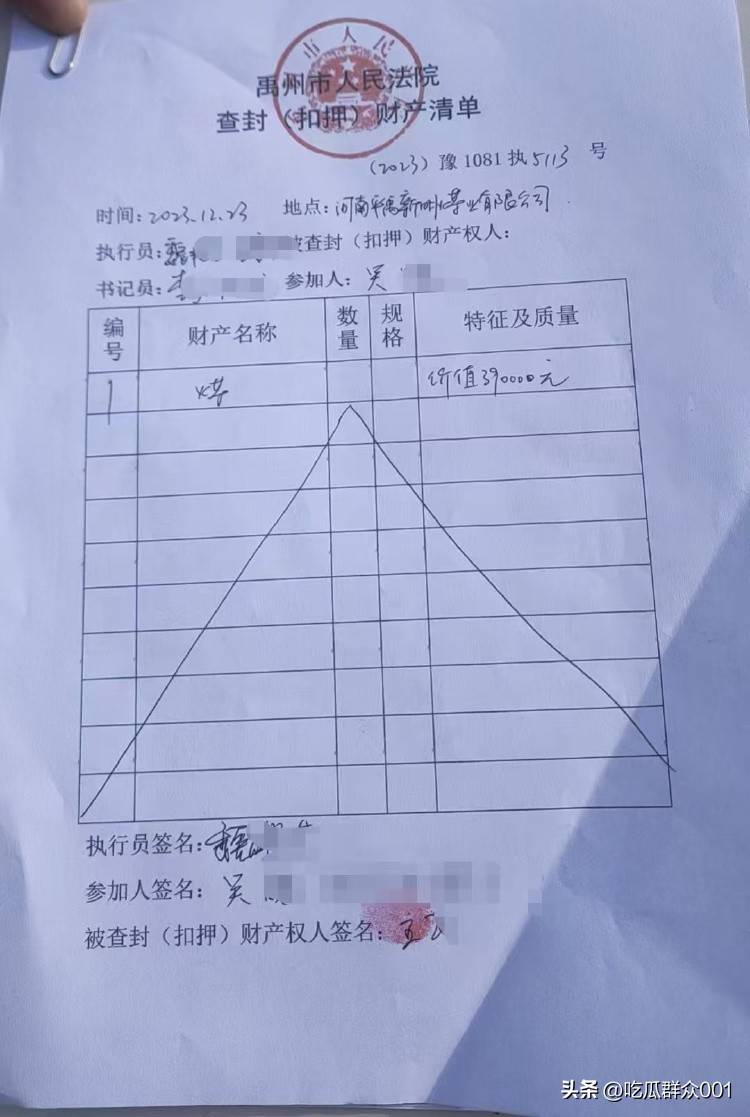 市人民
禹州市人民法院
查封（扣押）财产清单
（2023）豫1081执5113号
时间：2023.12.23 地点：河南平禹新州煤业有限公司
执行员：被查封（扣押）财产权人：
书记员：李 参加人：吴
编号 财产名称 数量 规格 特征及质量
1 煤 价值390000元
执行员签名：
参加人签名：吴
被查封（扣押）财产权人签名：
头条 @吃瓜群众001